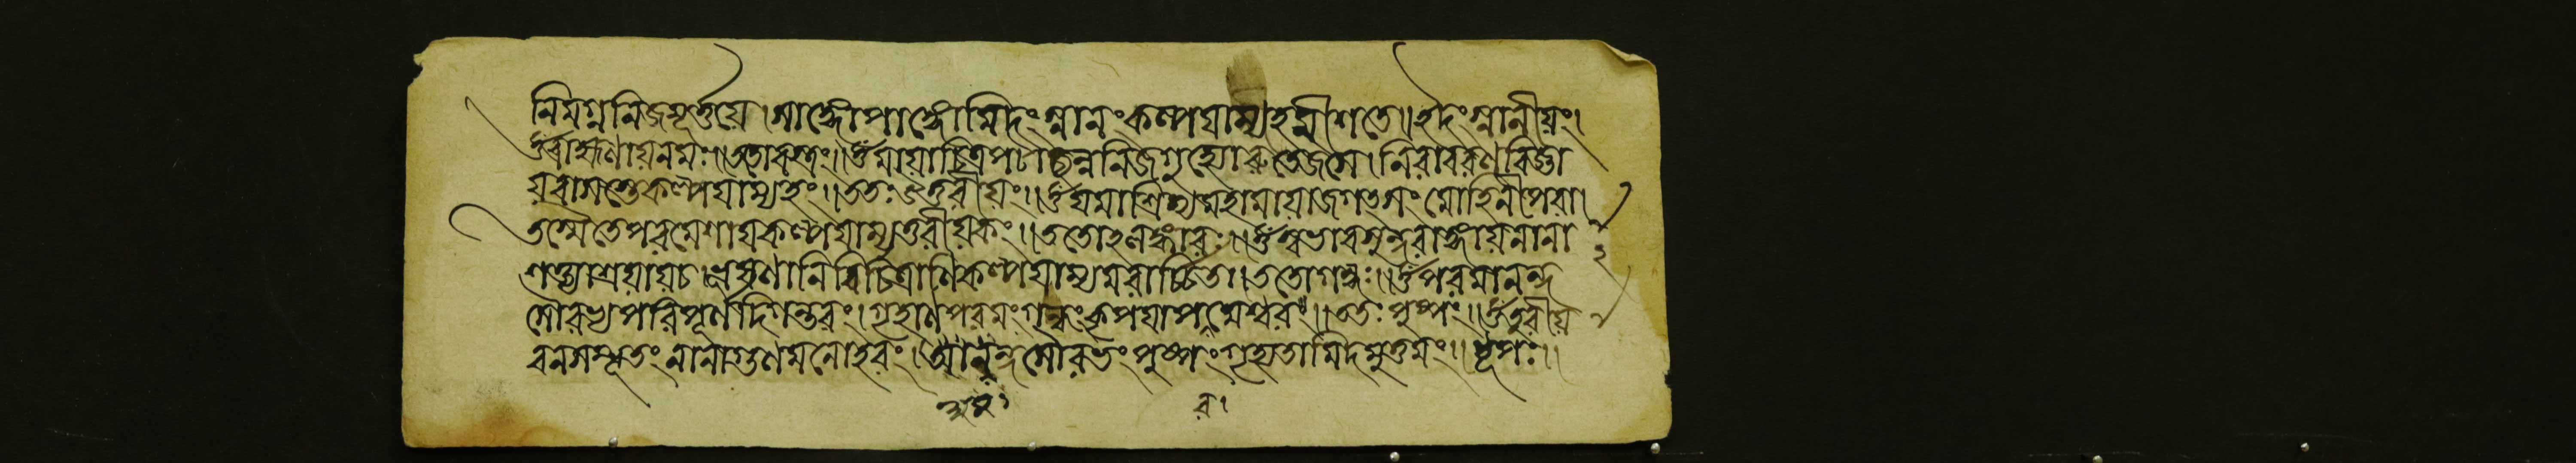 নিমগ্ননিজমূর্ত্তয়ে।সাঙ্গোপাঙ্গোমিদংস্নানংকল্পয়াম্যহমীশতে॥ইদংস্নানীয়ং।
ওঁব্রাহ্মণায়নমঃ॥ততোবস্ত্রং॥ওঁমায়াচিত্রপটাচ্ছন্ননিজগুহ্যোরুতেজসে।নিরাবরণবিজ্ঞা
য়বাসস্তেকল্পয়াম্যহং॥ততঃউতুরীয়ং॥ওঁযমাশ্রিত্যমহামায়াজগত্সংমোহিনীপরা।
তস্মৈতেপরমেশায়কল্পয়াম্যুতুরীয়কং॥ততোহলঙ্কারঃ॥ওঁস্বভাবসুন্দরাঙ্গায়নানা
শক্ত্যাশ্রয়ায়চ।ভূষণানিবিচিত্রাণিকল্পয়াম্যমরার্চ্চিত।ততোগন্ধঃ॥ওঁপরমানন্দ
সৌরভ্যপরিপূর্ণদিগন্তরং।গৃহাণপরমংগন্ধংকৃপয়াপরমেশ্বর॥ততঃপুষ্পং॥ওঁতুরীয়
বনসম্ভূতংনানাগুণমনোহরং।আনন্দসৌরভংপুষ্পংগৃহ্যতামিদমুতুমং॥ধূপঃ॥
র।